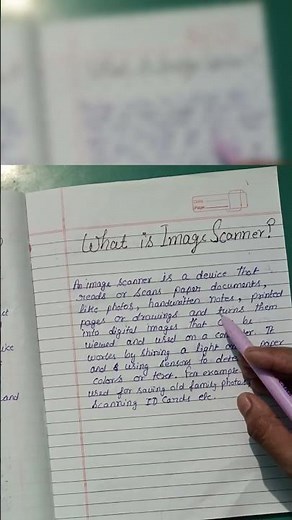 What is Image Scanner?
An image scanner is a device that
reads or scans paper documents,
like photos, handwritten notes, printed
pages or drawings and turns them
into digital images that can be
viewed and used on a It
works by shining a light paper
and using sensors to
colors or text. For example
used for saving old family photos
scanning ID Cards etc.